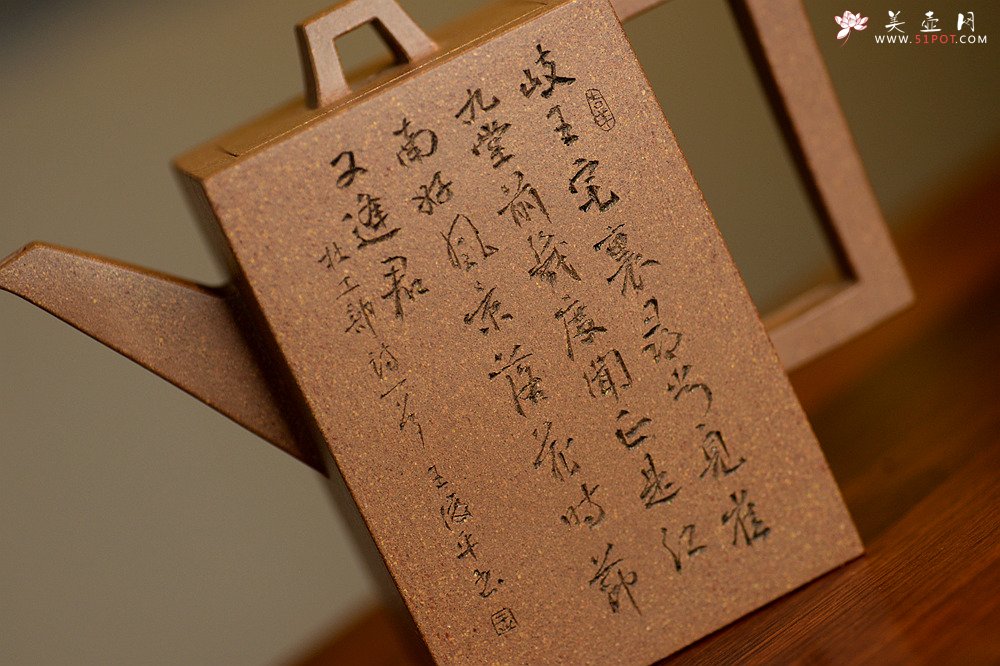 岐王宅裏尋常見崔
九堂前幾度聞正是江
南好風景落花時節
又逢君
杜工部詩一首 王
美壶网
WWW.51POT.COM